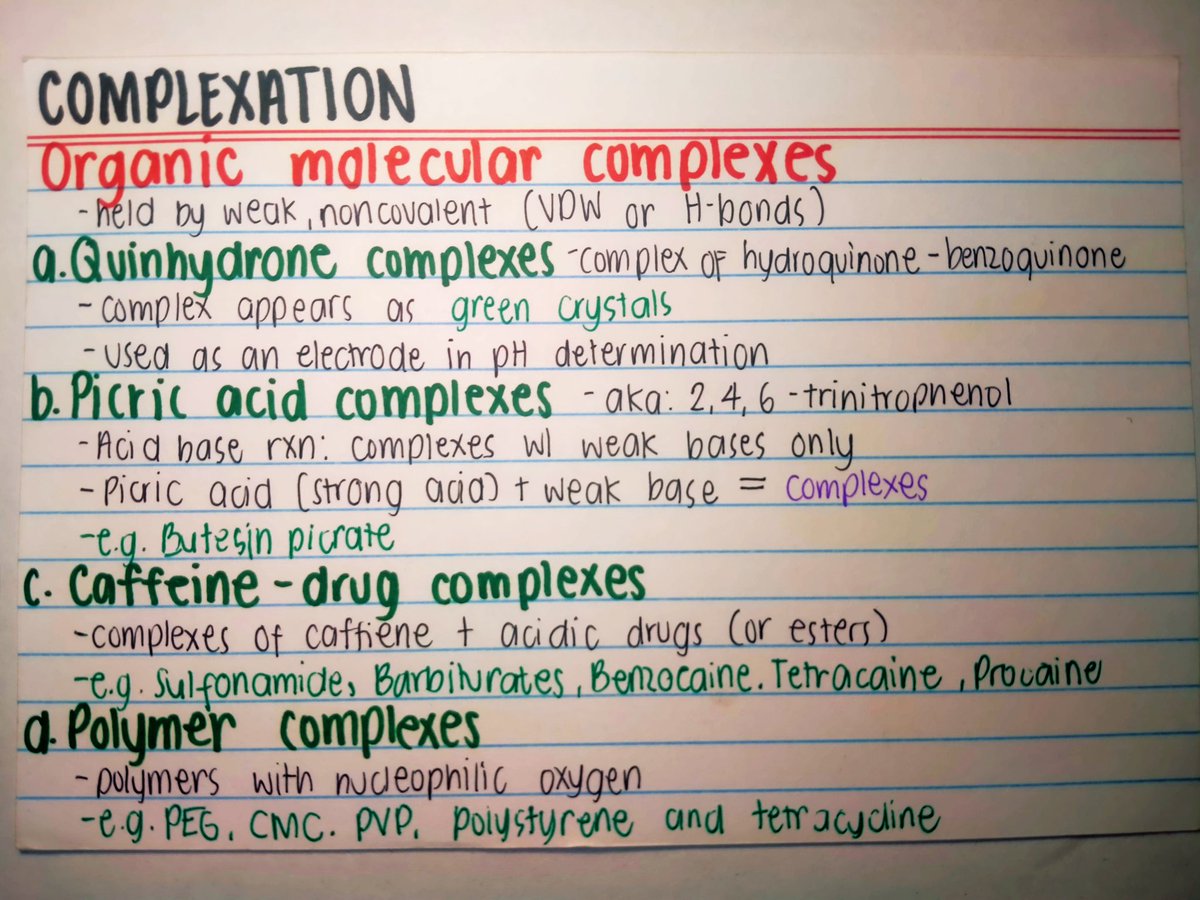 COMPLEXATION
Organic molecular complexes
-held by weak, noncovalent (VDW or H-bonds)
a. Quinhydrone complexes -complex of hydroquinone-benzoquinone
- complex appears as green crystals
- used as an electrode in pH determination
b. Picric acid complexes - aka: 2,4,6-trinitrophenol
- Acid base rxn: complexes w/ weak bases only
- Picric acid (strong acid) + weak base = complexes
-e.g. Butesin picrate
c. Caffeine-drug complexes
-complexes of caffiene + acidic drugs (or esters)
-e.g. Sulfonamide, Barbiturates, Benzocaine. Tetracaine, Procaine
d. Polymer complexes
-polymers with nucleophilic oxygen
-e.g. PEG, CMC. PVP, polystyrene and tetracycline